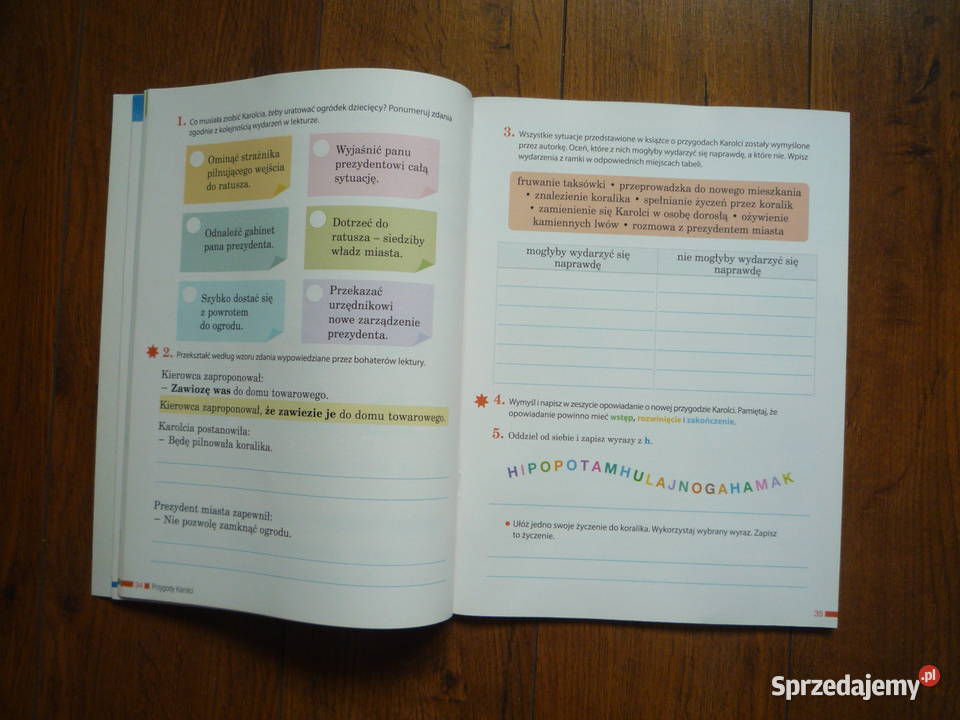 1. Co musiała zrobić Karolcia, żeby uratować ogródek dziecięcy? Ponumeruj zdania
zgodnie z kolejnością wydarzeń w lekturze.
Ominąć strażnika
pilnującego wejścia
do ratusza.
Wyjaśnić panu
prezydentowi całą
sytuację.
Odnaleźć gabinet
pana prezydenta.
Dotrzeć do
ratusza – siedziby
władz miasta.
Szybko dostać się
z powrotem
do ogrodu.
Przekazać
urzędnikowi
nowe zarządzenie
prezydenta.
2. Przekształć według wzoru zdania wypowiedziane przez bohaterów lektury.
Kierowca zaproponował:
– Zawiozę was do domu towarowego.
Kierowca zaproponował, że zawiezie je do domu towarowego.
Karolcia postanowiła:
– Będę pilnowała koralika.
Prezydent miasta zapewnił:
– Nie pozwolę zamknąć ogrodu.
34 Przygody Karolci
3. Wszystkie sytuacje przedstawione w książce o przygodach Karolci zostały wymyślone
przez autorkę. Oceń, które z nich mogłyby wydarzyć się naprawdę, a które nie. Wpisz
wydarzenia z ramki w odpowiednich miejscach tabeli.
fruwanie taksówki • przeprowadzka do nowego mieszkania
• znalezienie koralika • spełnianie życzeń przez koralik
• zamienienie się Karolci w osobę dorosłą • ożywienie
kamiennych lwów • rozmowa z prezydentem miasta
mogłyby wydarzyć się
naprawdę
nie mogłyby wydarzyć się
naprawdę
4. Wymyśl i napisz w zeszycie opowiadanie o nowej przygodzie Karolci. Pamiętaj, że
opowiadanie powinno mieć wstęp, rozwinięcie i zakończenie.
5. Oddziel od siebie i zapisz wyrazy z h.
HIPOPOTAMHULAJNOGAHAMAK
• Ułóż jedno swoje życzenie do koralika. Wykorzystaj wybrany wyraz. Zapisz
to życzenie.
35
Sprzedajemy.pl